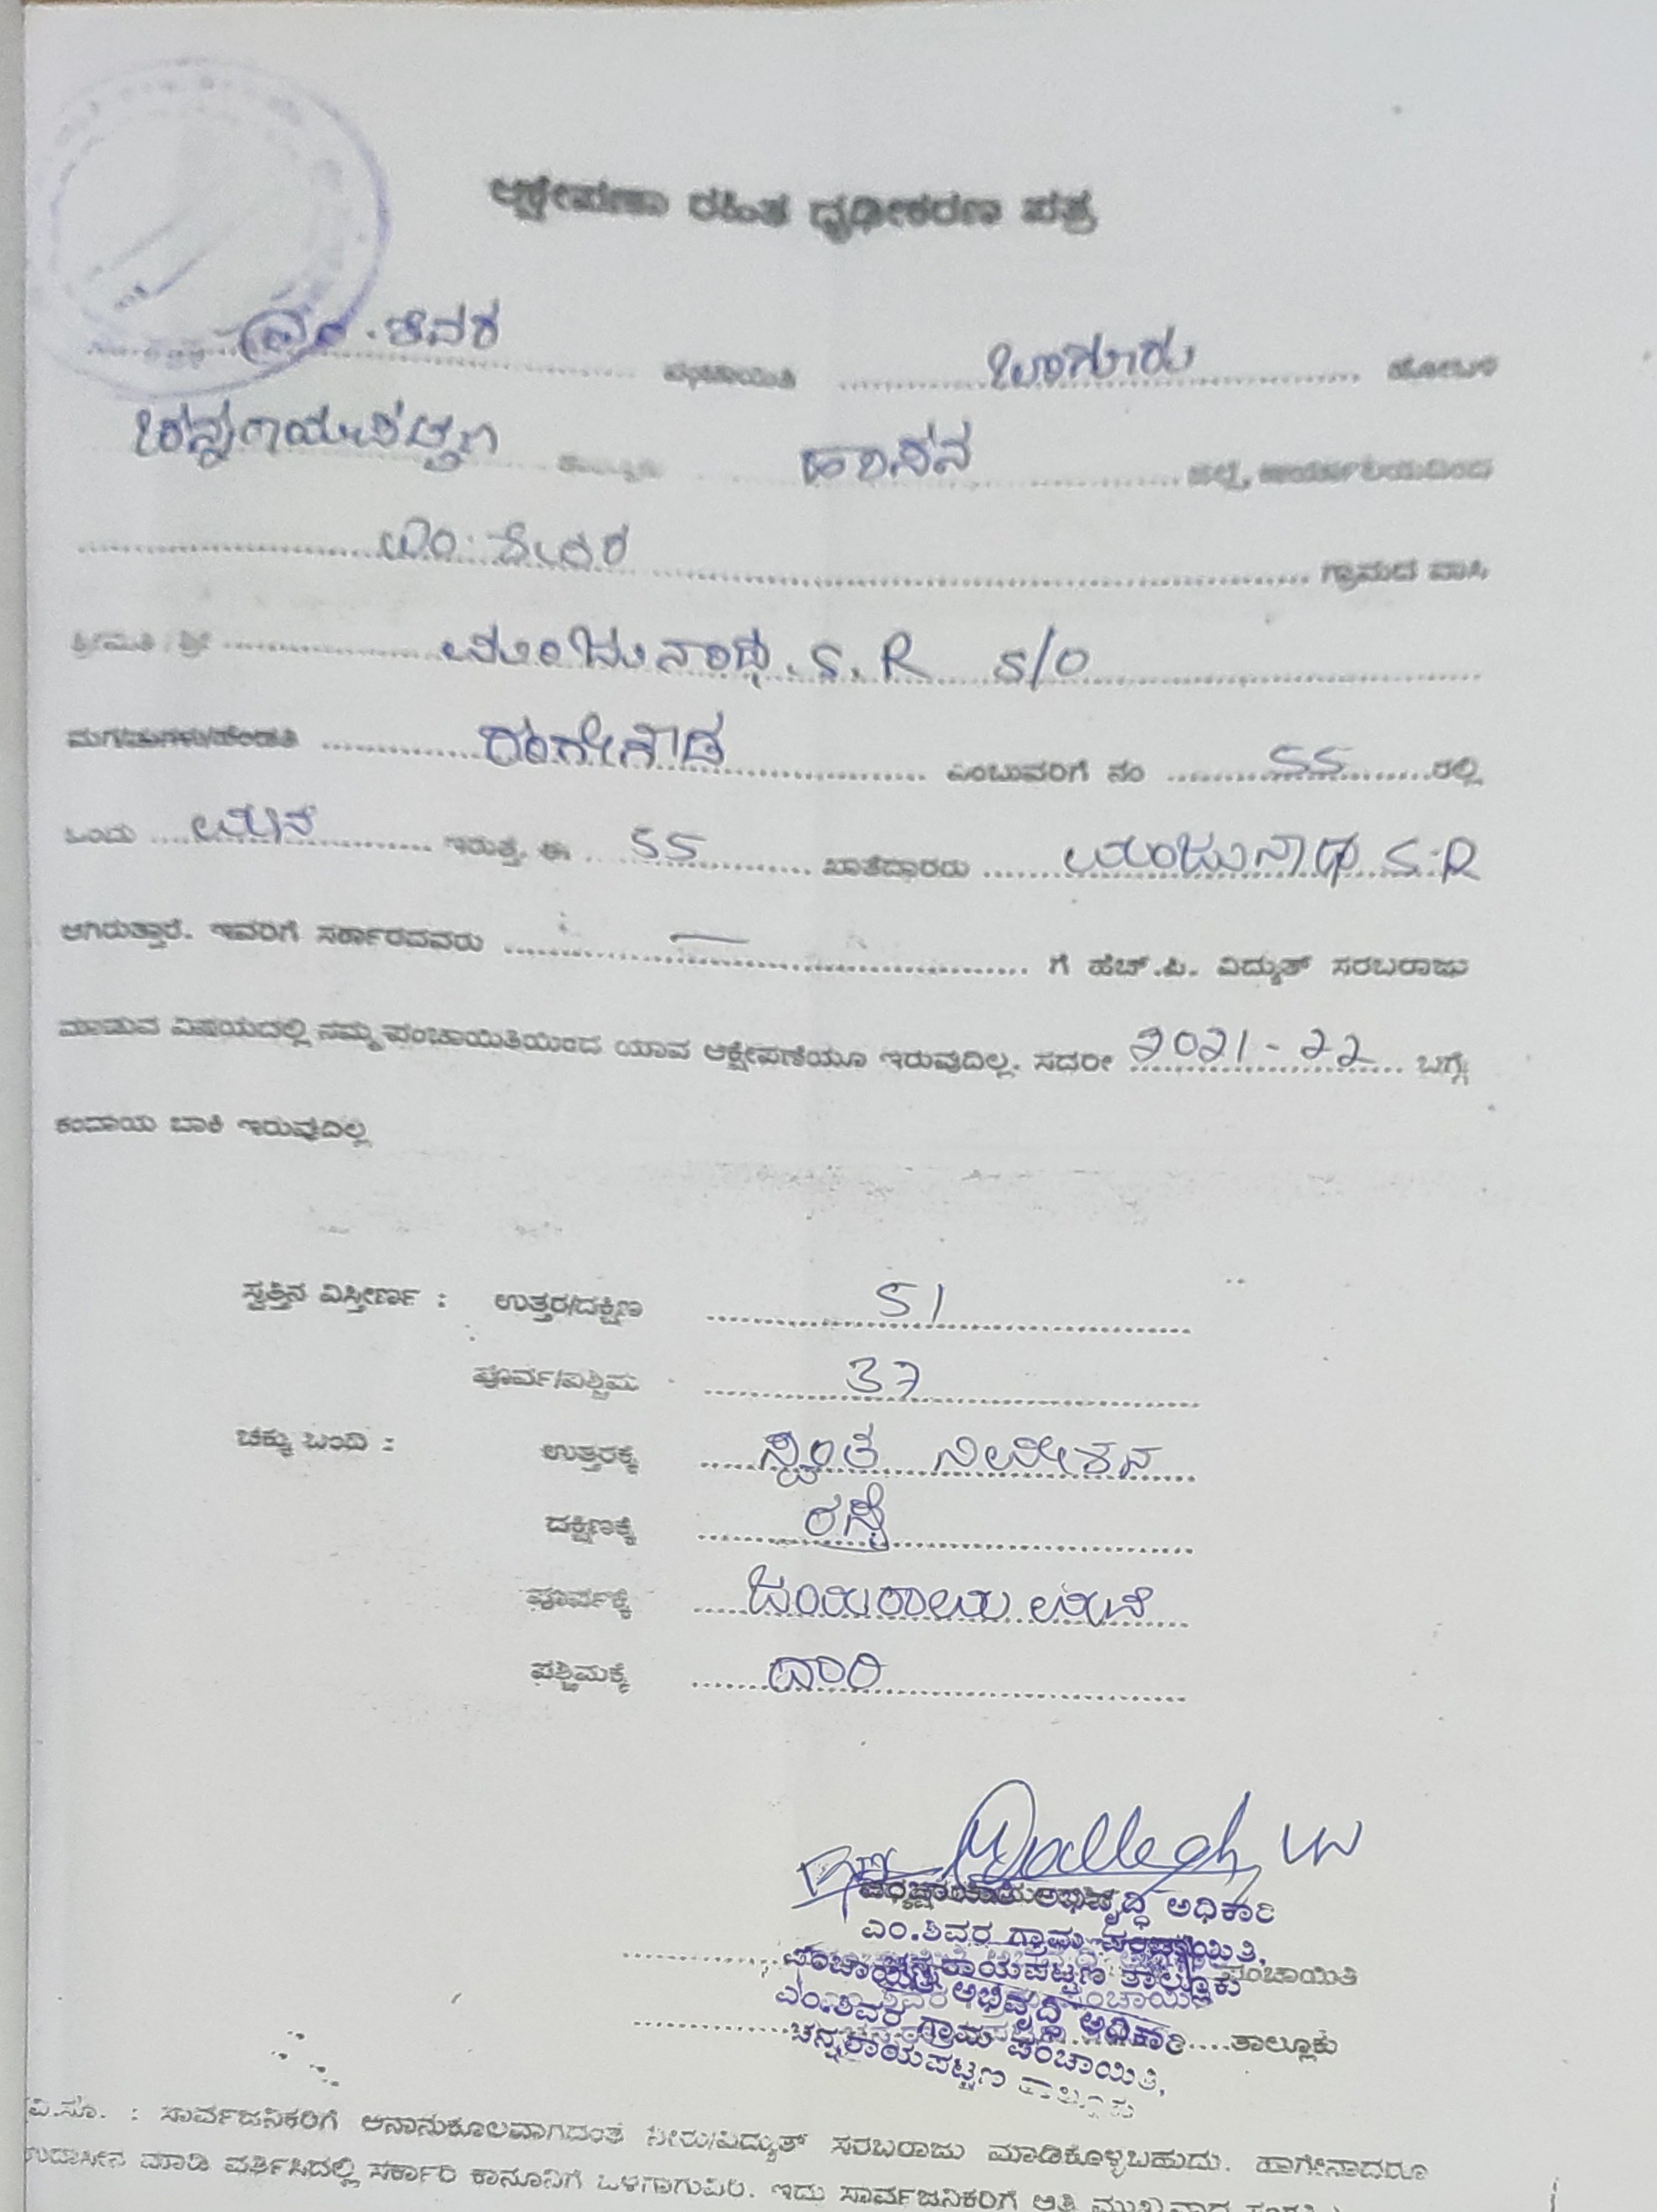 ಆಕ್ಷೇಪಣಾ ರಹಿತ ಧೃಢೀಕರಣ ಪತ್ರ
ಎಂ.ಶಿವರ ಪಂಚಾಯಿತಿ ಬಾಗೂರು ಹೋಬಳಿ
ಚನ್ನರಾಯಪಟ್ಟಣ ತಾಲ್ಲೂಕು ಹಾಸನ ಜಿಲ್ಲೆ, ಕಾರ್ಯಾಲಯದಿಂದ
ಎಂ. ಶಿವರ ಗ್ರಾಮದ ವಾಸಿ
ಶ್ರೀಮತಿ / ಶ್ರೀ ಮಂಜುನಾಥ. S. R S/O
ಮಗ/ಮಗಳು/ಹೆಂಡತಿ ರಂಗೇಗೌಡ ಎಂಬುವರಿಗೆ ನಂ 55 ರಲ್ಲಿ
ಒಂದು ಮನೆ ಇರುತ್ತೆ. ಈ 55 ಖಾತೆದ್ದಾರರು ಮಂಜುನಾಥ S.R
ಆಗಿರುತ್ತಾರೆ. ಇವರಿಗೆ ಸರ್ಕಾರದವರು — ಗೆ ಹೆಚ್.ಪಿ. ವಿದ್ಯುತ್ ಸರಬರಾಜು
ಮಾಡುವ ವಿಷಯದಲ್ಲಿ ನಮ್ಮ ಪಂಚಾಯಿತಿಯಿಂದ ಯಾವ ಆಕ್ಷೇಪಣೆಯೂ ಇರುವುದಿಲ್ಲ. ಸದರೀ 2021-22 ಬಗ್ಗೆ
ಕಂದಾಯ ಬಾಕಿ ಇರುವುದಿಲ್ಲ
ಸ್ವತ್ತಿನ ವಿಸ್ತೀರ್ಣ : ಉತ್ತರ/ದಕ್ಷಿಣ 51
ಪೂರ್ವ/ಪಶ್ಚಿಮ 37
ಚಕ್ಕು ಬಂದಿ : ಉತ್ತರಕ್ಕೆ ಸ್ವಂತ ನಿವೇಶನ
ದಕ್ಷಿಣಕ್ಕೆ ರಸ್ತೆ
ಪೂರ್ವಕ್ಕೆ ಜಯರಾಮ ಮನೆ
ಪಶ್ಚಿಮಕ್ಕೆ ದಾರಿ
ಅಭಿವೃದ್ಧಿ ಅಧಿಕಾರಿ
ಎಂ.ಶಿವರ ಗ್ರಾಮ ಪಂಚಾಯಿತಿ,
ಚನ್ನರಾಯಪಟ್ಟಣ ತಾಲ್ಲೂಕು
ಪಂಚಾಯಿತಿ
ಪಂಚಾಯಿತಿ ಅಭಿವೃದ್ಧಿ ಅಧಿಕಾರಿ
ಎಂ.ಶಿವರ ಗ್ರಾಮ ಪಂಚಾಯಿತಿ,
ತಾಲ್ಲೂಕು
ಚನ್ನರಾಯಪಟ್ಟಣ ತಾಲ್ಲೂಕು
ವಿ.ಸೂ. : ಸಾರ್ವಜನಿಕರಿಗೆ ಅನಾನುಕೂಲವಾಗದಂತೆ ನೀರು/ವಿದ್ಯುತ್ ಸರಬರಾಜು ಮಾಡಿಕೊಳ್ಳಬಹುದು. ಹಾಗೇನಾದರೂ
ಉದಾಸೀನ ಮಾಡಿ ವರ್ತಿಸಿದಲ್ಲಿ ಸರ್ಕಾರಿ ಕಾನೂನಿಗೆ ಒಳಗಾಗುವಿರಿ. ಇದು ಸಾರ್ವಜನಿಕರಿಗೆ ಅತಿ ಮುಖ್ಯವಾದ